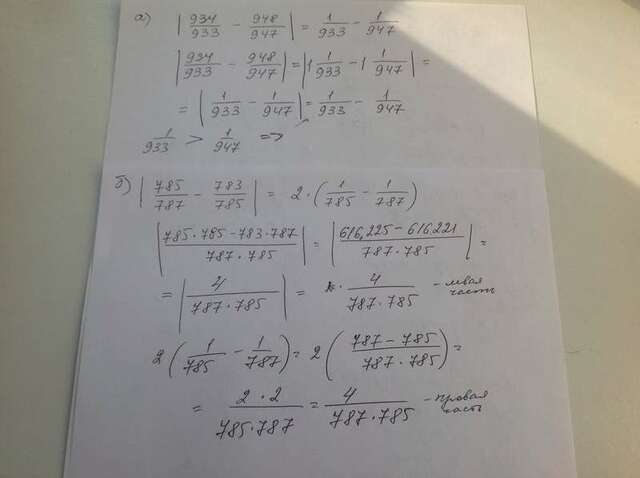 а) | 934/933 - 948/947 | = 1/933 - 1/947
| 934/933 - 948/947 | = | 1 1/933 - 1 1/947 | =
= | 1/933 - 1/947 | = 1/933 - 1/947
1/933 > 1/947 =>
б) | 785/787 - 783/785 | = 2 · ( 1/785 - 1/787 )
| 785·785 - 783·787 / 787·785 | = | 616,225 - 616221 / 787·785 | =
= | 4 / 787·785 | = 4 / 787·785 - левая часть
2 ( 1/785 - 1/787 ) = 2 ( 787 - 785 / 787·785 ) =
= 2·2 / 785·787 = 4 / 787·785 - правая часть